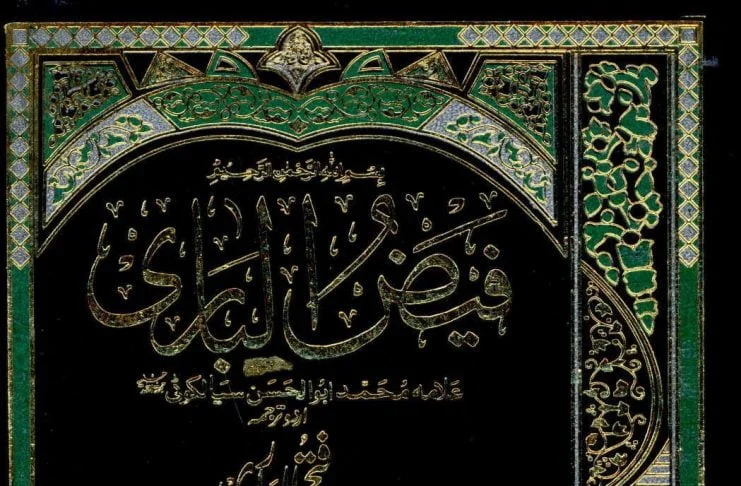 بسم الله الرحمن الرحيم
فیض الباری
علامه محمد ابوالحسن سیالکوٹی
اردو ترجمه
فتح الباری